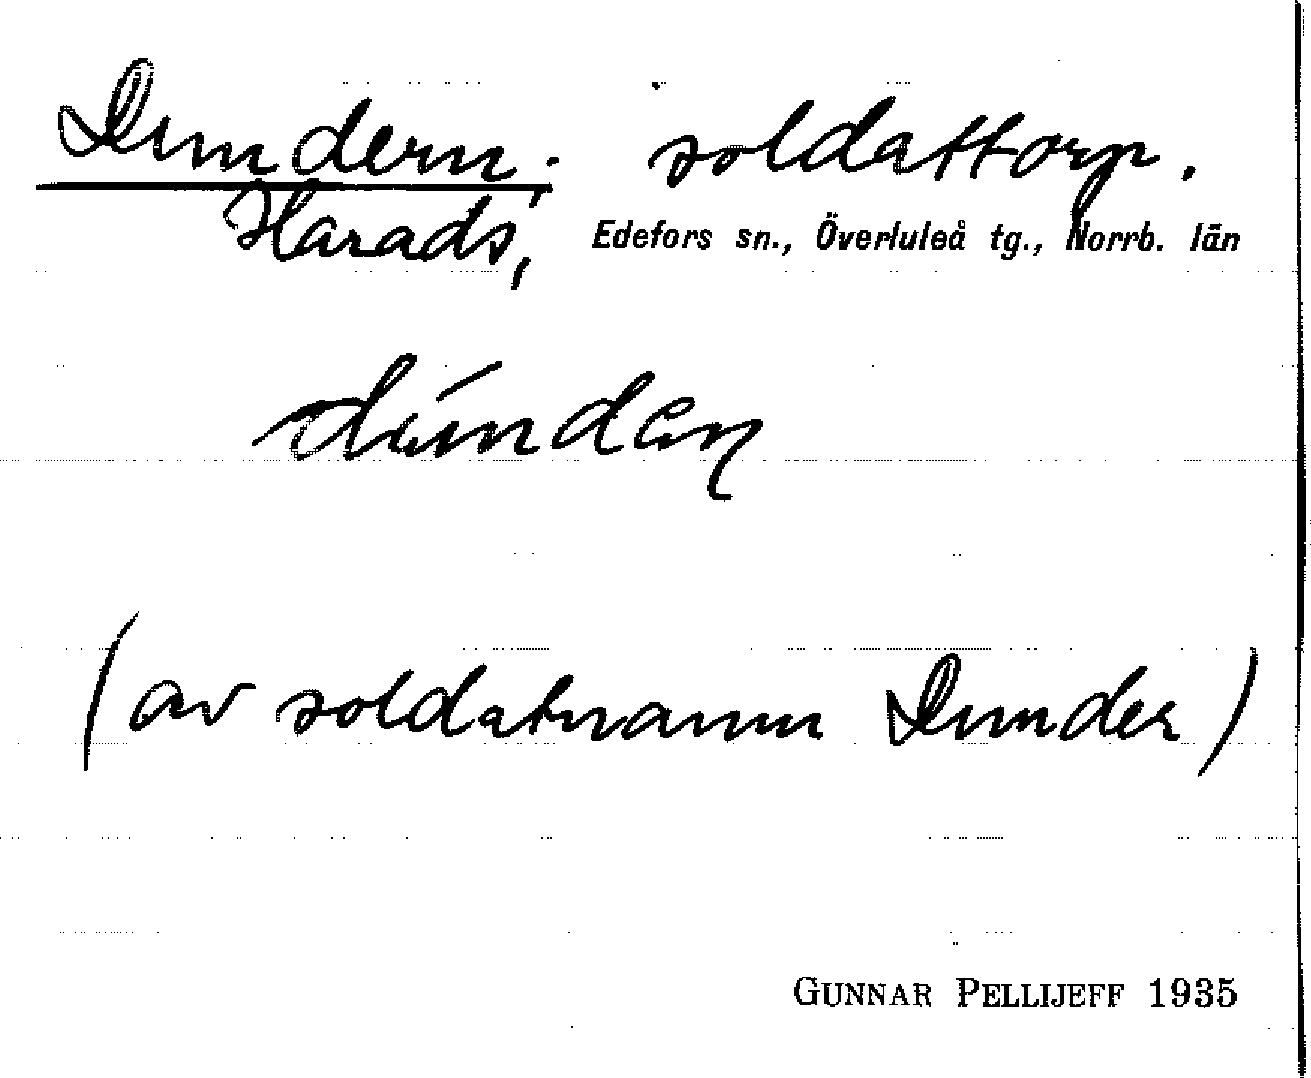 Dundern; soldattorp.
Harads, Edefors sn., Överluleå tg., Norrb. län
(av soldatnamn Dunder)
GUNNAR PELLIJEFF 1935